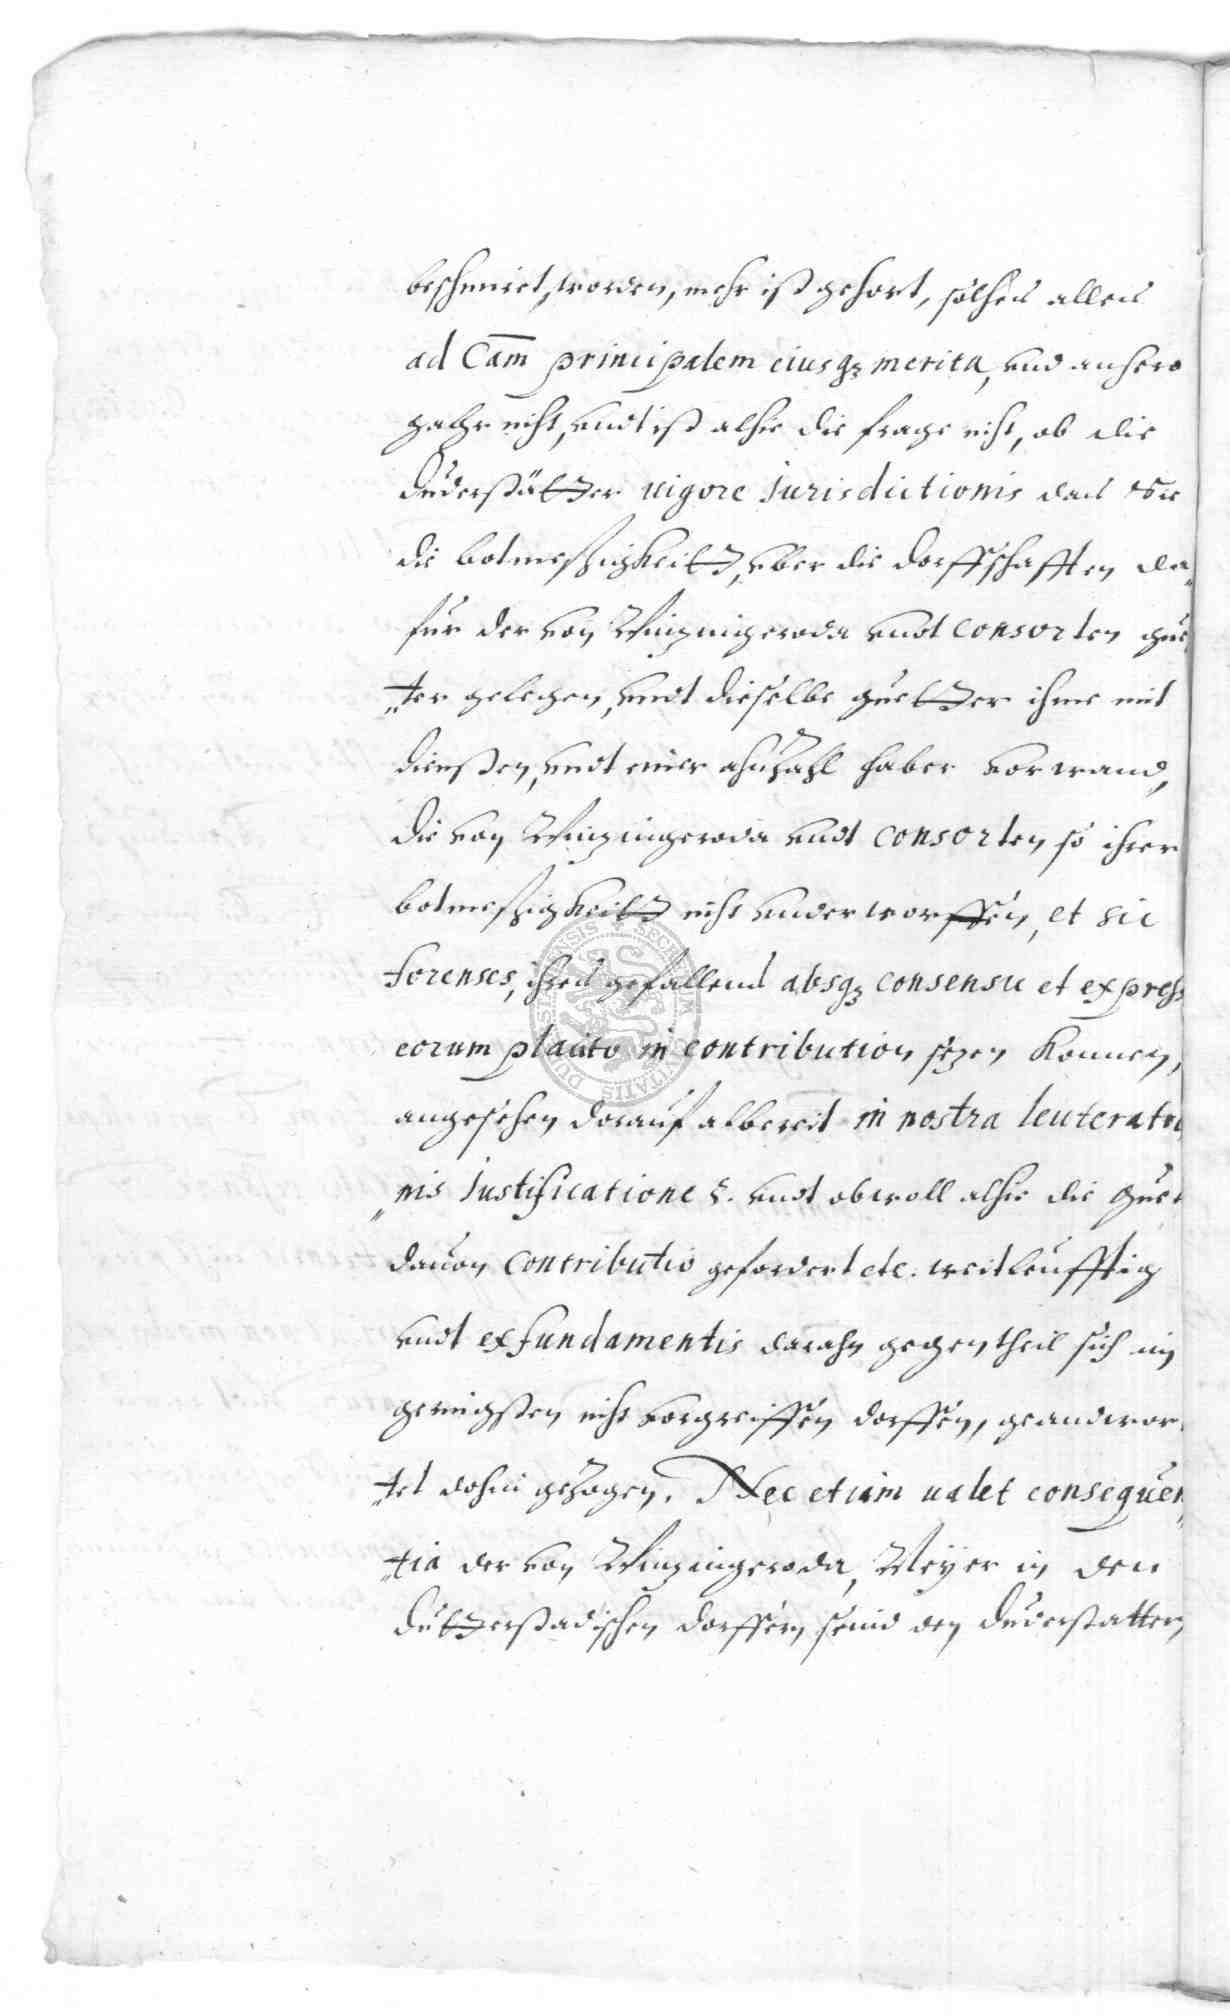 beschmiret, worden, mehr ist gehort, solches alles
ad Cam principalem eiusq; merita, und anhero
gahr nicht, undt ist alhie die frage nicht, ob die
Duderstätter uigore Jurisdictionis das sie
die botmeßigkeitt, uber die dorffschafften da„
für der von Winzingeroda undt consorten gue
„ter gelegen, undt dieselbe guetter ihme mit
diensten, undt einer ahnzahl haber vorwand,
die von Winzingeroda undt consorten so ihrer
botmeßigkeitt nicht underworffen, et sic
forenses, ihres gefallens absq; consensu et express
eorum placito in contribution sezen konnen,
angesehen dorauf albereit in nostra leuteratio
„nis Justificatione §. undt obwoll alhie die guet
dauon contributio gefordert etc. weitleufftig
undt ex fundamentis darahn gegentheil sich im
geringsten nicht vorgreiffen dorffen, geandwor„
„tet dohin gezogen. Nec etiam ualet consequen„
„tia der von Winzingeroda, Meyer in den
Dutterstadischen dorffern seind den Duderstatten,
SECRETUM CIVITATIS DUDERSTADENSIS